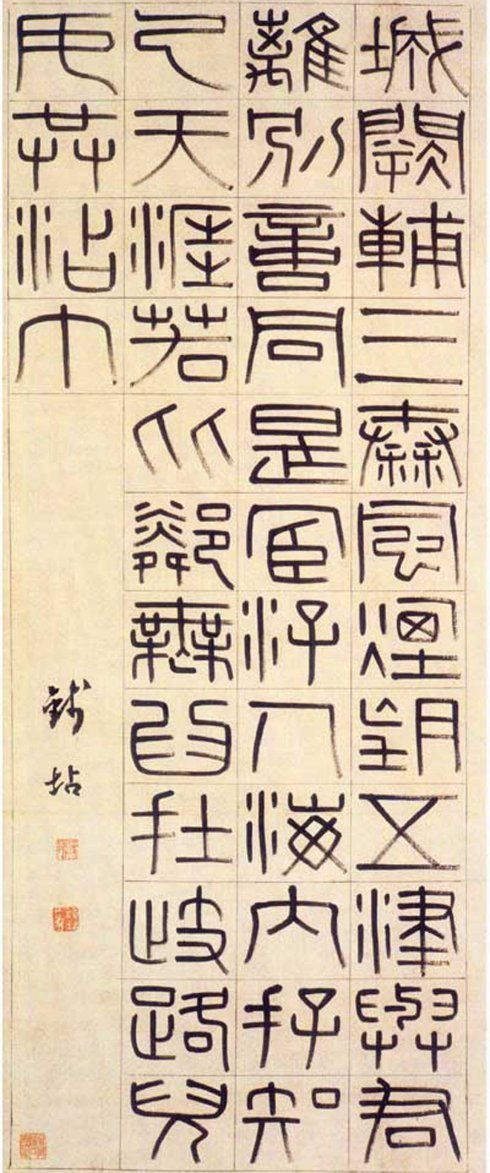 城闕輔三秦風煙望五津與君
離別意同是宦汓人海內存知
己天涯若比鄰無爲在歧路兒
女共沾巾
錢坫